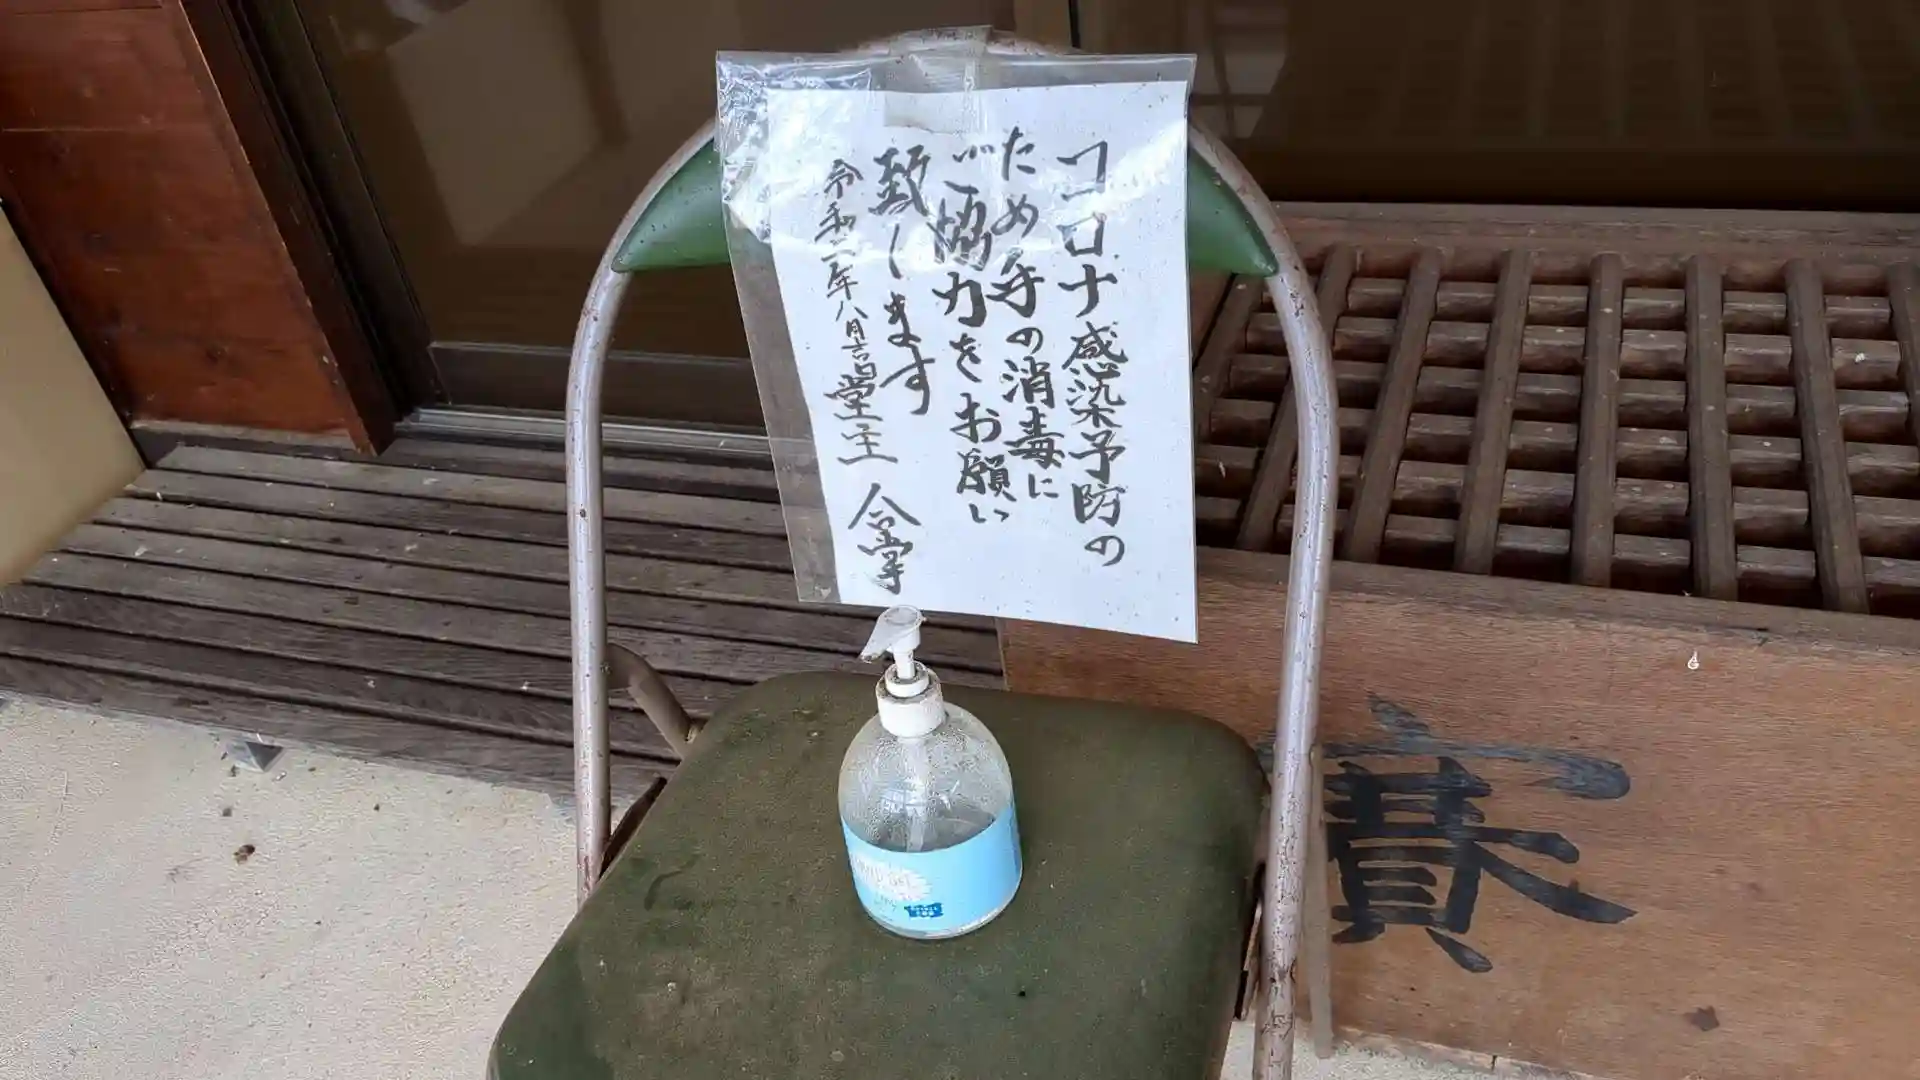 コロナ感染予防の
ため手の消毒に
ご協力をお願い
致します
令和二年八月吉日堂主 合掌
賽